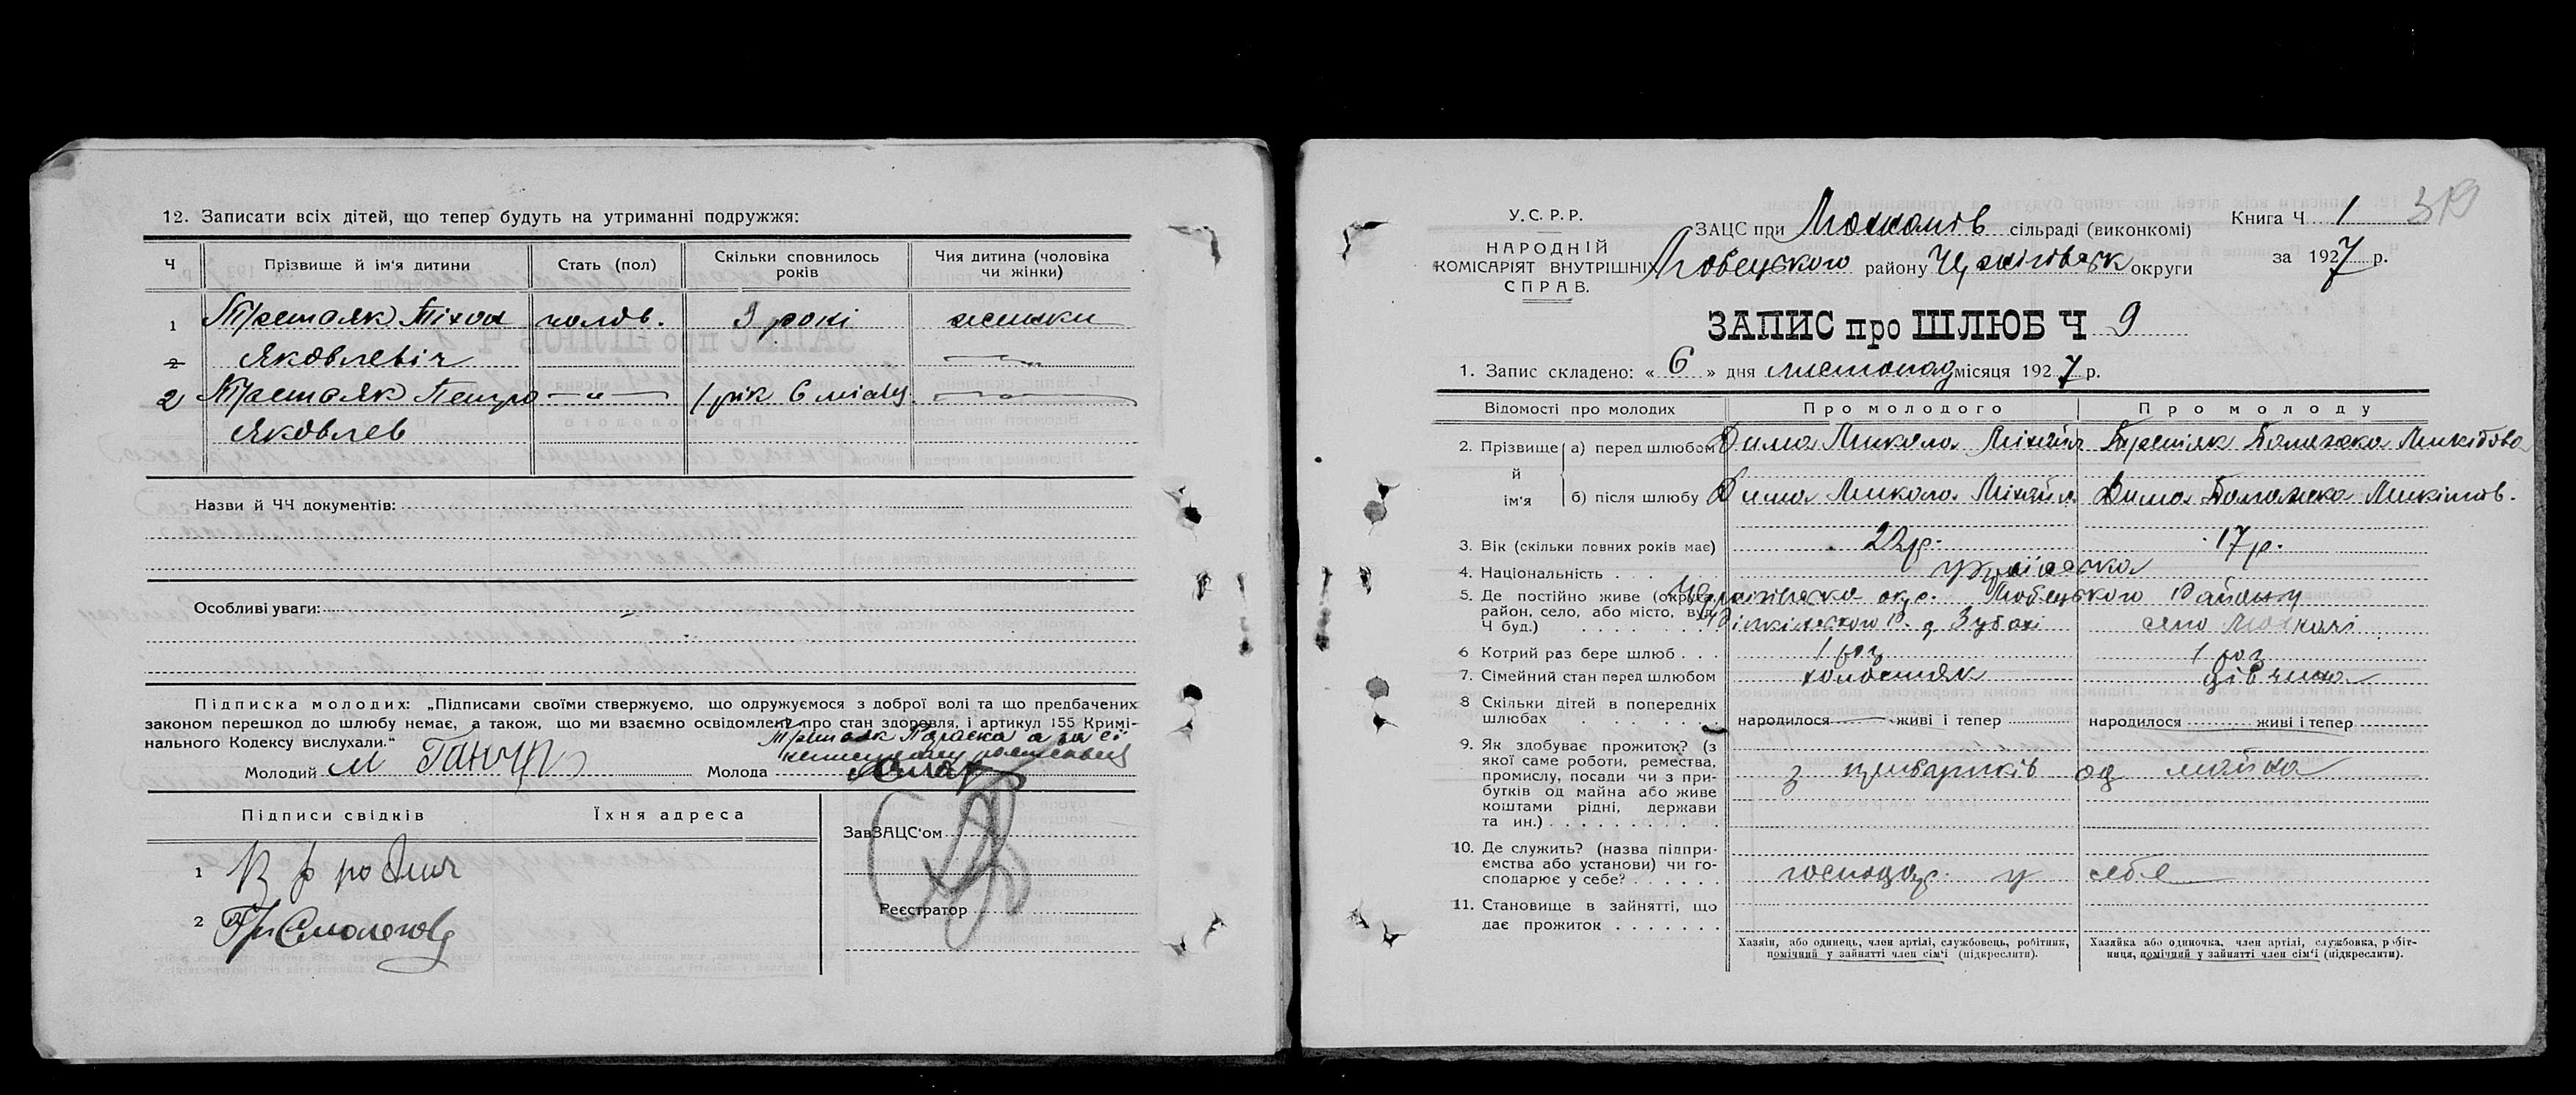 12. Записати всіх дітей, що тепер будуть на утриманні подружжя:
Ч Прізвище й ім'я дитини Стать (пол) Скільки сповнилось років Чия дитина (чоловіка чи жінки)
1 Третяк Тихон чолов. 3 рокі жинки
2 Яковлевіч
2 Третяк Петро —„— 1 рік 6 місяц.
Яковлев
Назви й ЧЧ документів:
Особливі уваги: –
Підписка молодих: „Підписами своїми стверджуємо, що одружуємося з доброї волі та що предбачених
законом перешкод до шлюбу немає, а також, що ми взаємно освідомлені про стан здоровля, і артикул 155 Кримі-
нального Кодексу вислухали."
Третяк Параска а за її
Молодий М Ганчц Молода
Підписи свідків Їхня адреса
ЗавЗАЦС'ом
1
Реєстратор
2
У.С.Р.Р.
НАРОДНІЙ
КОМІСАРІЯТ ВНУТРІШНІХ
СПРАВ.
ЗАЦС при сільраді (виконкомі)
Любецького району Чернігівськ округи
Книга Ч 1 319
за 1927 р.
ЗАПИС про ШЛЮБ Ч 9
1. Запис складено: « 6 » дня листопад місяця 1927 р.
Відомості про молодих Про молодого Про молоду
2. Прізвище й ім'я а) перед шлюбом Дима Микола Міхайл Третяк Палажка Микітова
б) після шлюбу Дима Микола Міхайл. Дима Палажка Микітов.
3. Вік (скільки повних років має) 22 р. 17 р.
4. Національність . . . українська
5. Де постійно живе (округа, район, село, або місто, вул. Ч буд.) Чернігівська окр. Любецького Району
Ріпкінского Р. с Зубахі село
6 Котрий раз бере шлюб . . . 1 раз 1 раз
7. Сімейний стан перед шлюбом холостяк дівчина
8 Скільки дітей в попередніх
шлюбах народилося — живі і тепер народилося живі і тепер
9. Як здобуває прожиток? (з
якої саме роботи, ремества,
промислу, посади чи з при-
бутків од майна або живе
коштами рідні, держави
та ин.)
з прибутків од майна
10. Де служить? (назва підпри-
ємства або установи) чи го-
сподарює у себе?
господар. у себе
11. Становище в зайнятті, що
дає прожиток
Хазяін, або одинець, член артілі, службовець, робітник,
помічний у зайнятті член сім'ї (підкреслити).
Хазяйка або одиночка, член артілі, службовка, робіт-
ниця, помічний у зайнятті член сім'ї (підкреслити).